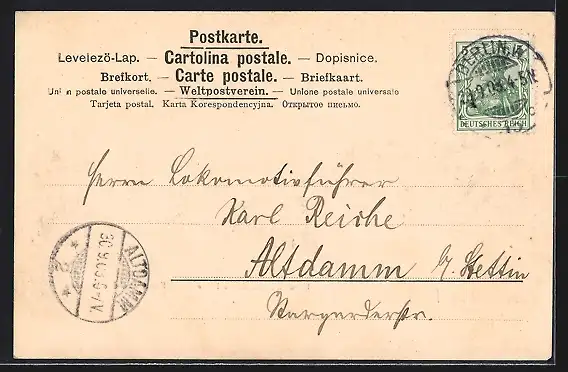 Postkarte.
Levelező-Lap. — Cartolina postale. — Dopisnice.
Brefkort. — Carte postale. — Briefkaart.
Union postale universelle. — Weltpostverein. — Unione postale universale
Tarjeta postal. Karta Korespondencyjna. Открытое письмо.
BERLIN.W.
DEUTSCHES REICH
Herrn Lokomotivführer
Karl Reiche
Altdamm b/ Stettin
Stargarderstr.
ALTDAMM